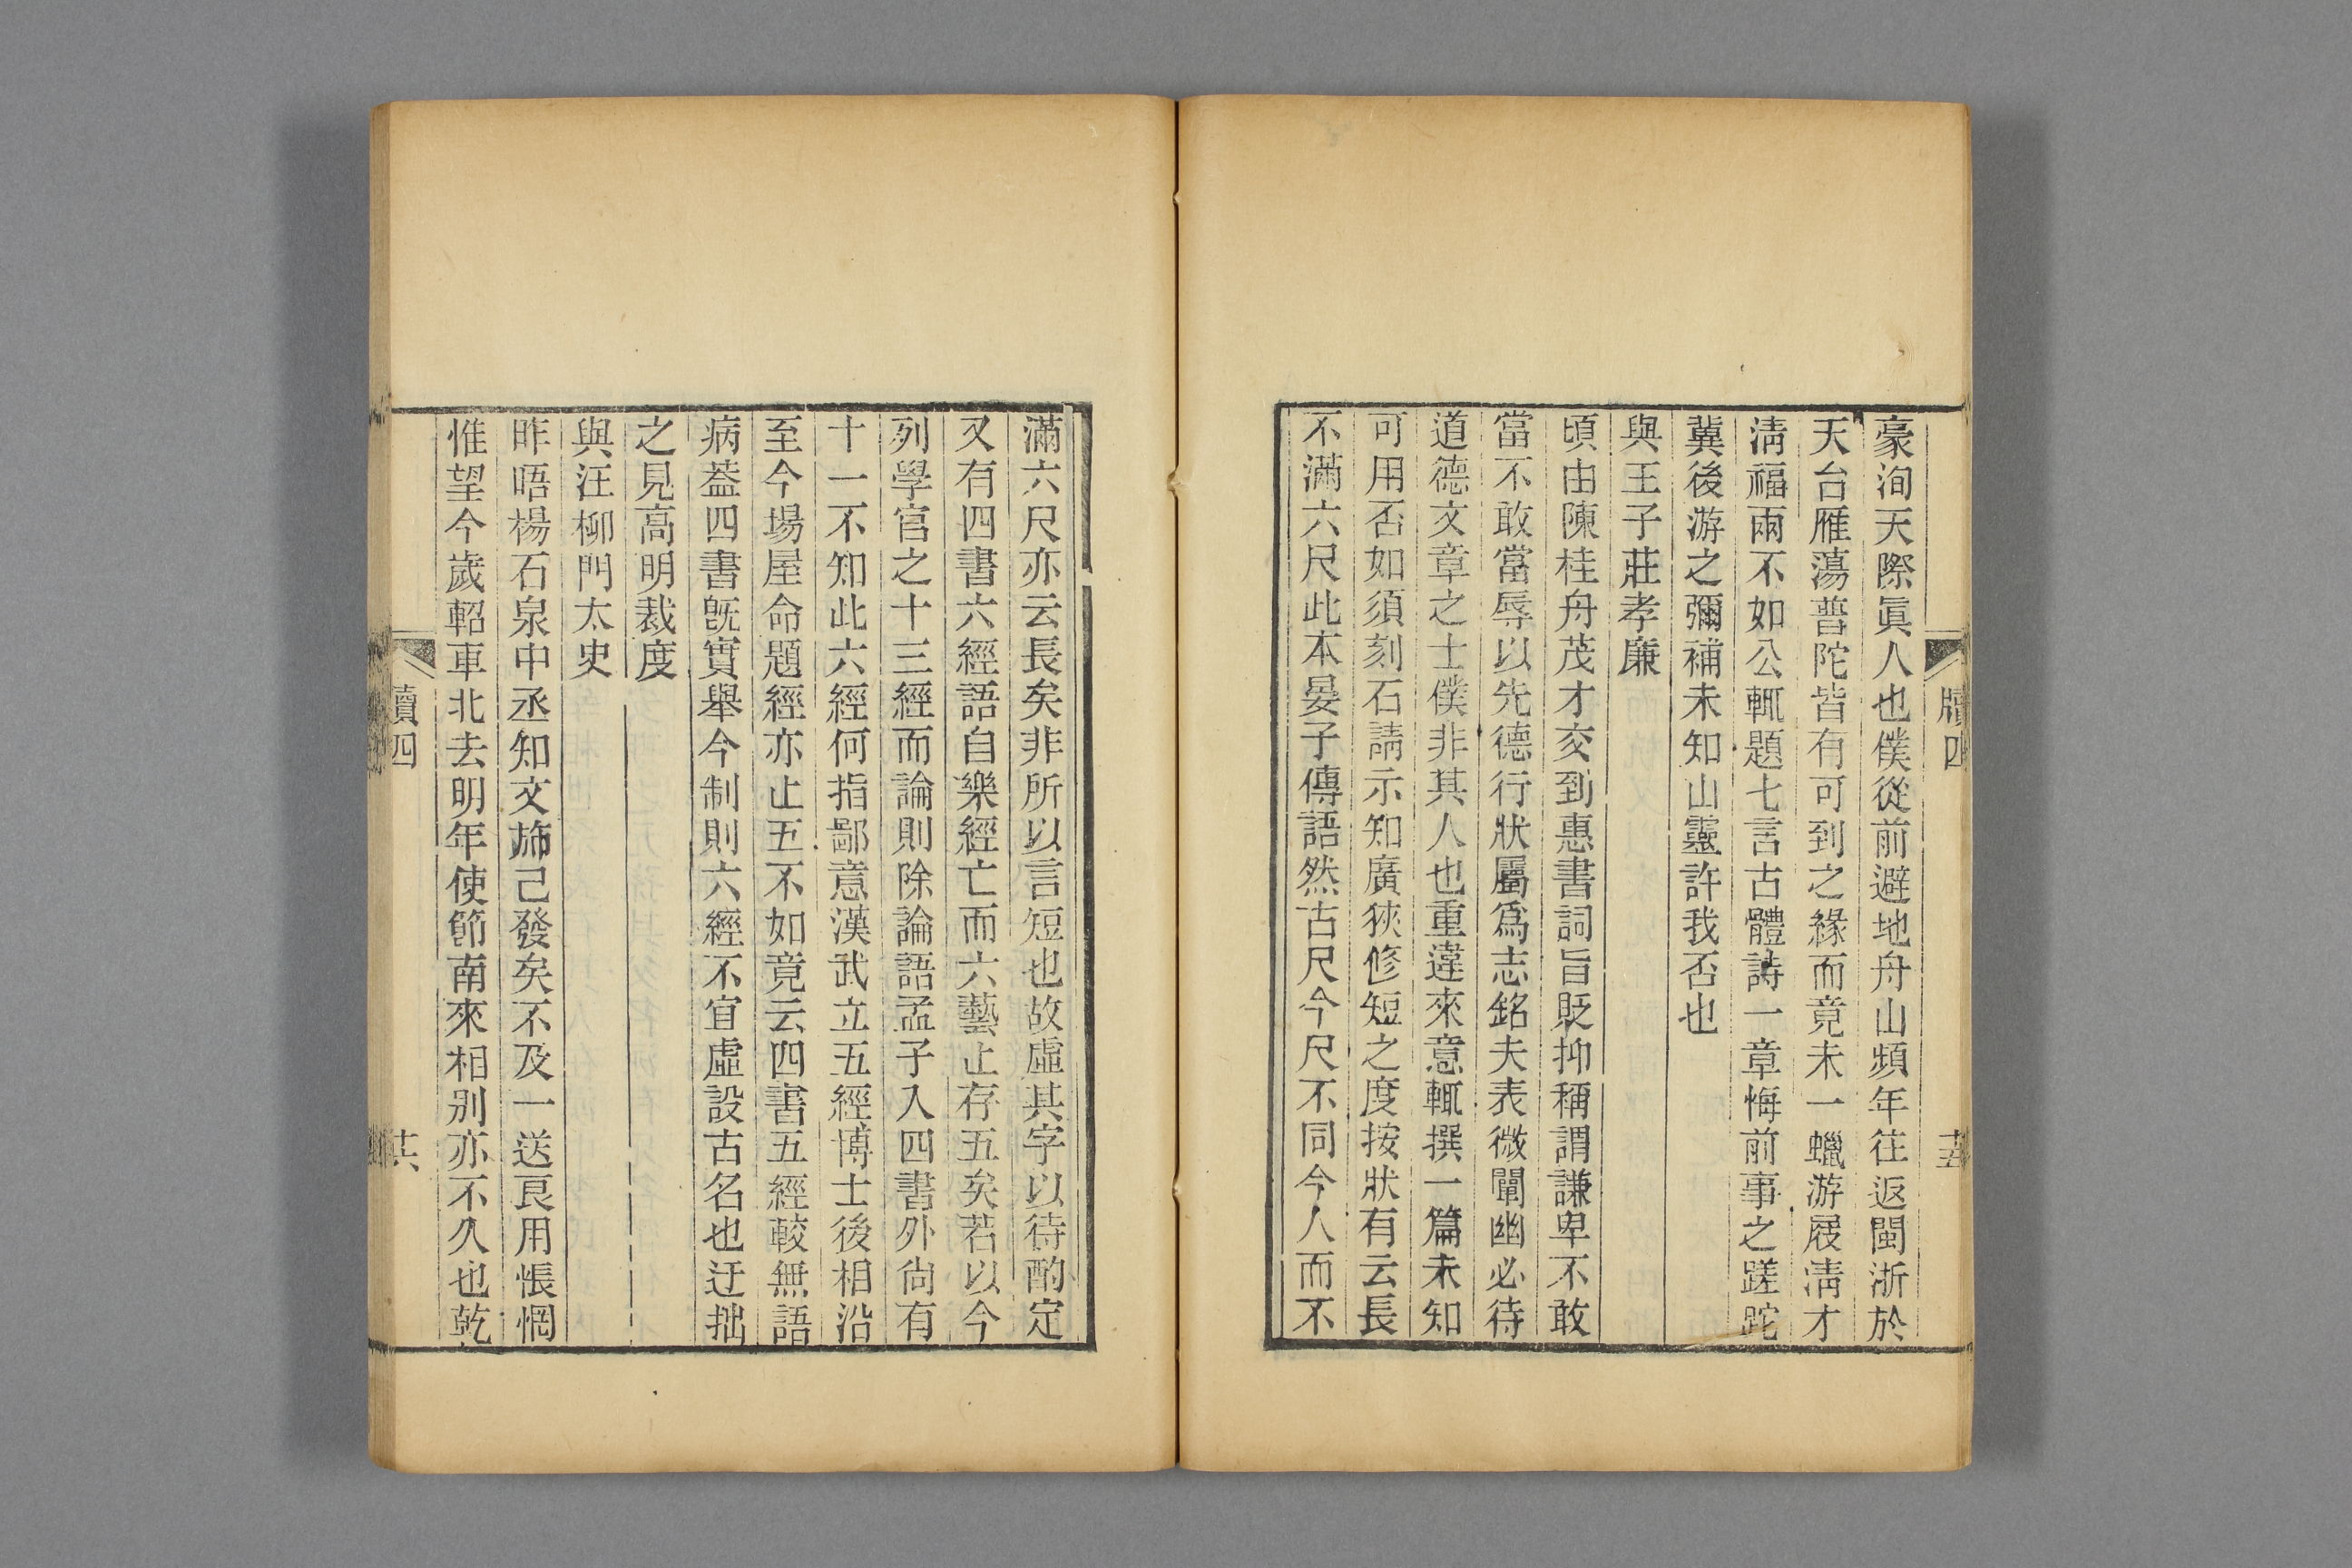 牘四
十五
豪洵天際眞人也僕從前避地舟山頻年往返閩浙於
天台雁蕩普陀皆有可到之緣而竟未一蠟游屐淸才
淸福兩不如公輒題七言古體詩一章悔前事之蹉跎
冀後游之彌補未知山靈許我否也
與王子莊孝廉
頃由陳桂舟茂才交到惠書詞旨貶抑稱謂謙卑不敢
當不敢當辱以先德行狀屬爲志銘夫表微闡幽必待
道德文章之士僕非其人也重違來意輒撰一篇未知
可用否如須刻石請示知廣狹修短之度按狀有云長
不滿六尺此本晏子傳語然古尺今尺不同今人而不
滿六尺亦云長矣非所以言短也故虛其字以待酌定
又有四書六經語自樂經亡而六藝止存五矣若以今
列學官之十三經而論則除論語孟子入四書外尙有
十一不知此六經何指鄙意漢武立五經博士後相沿
至今場屋命題經亦止五不如竟云四書五經較無語
病葢四書旣實舉今制則六經不宜虛設古名也迂拙
之見高明裁度
與汪柳門太史
昨晤楊石泉中丞知文斾已發矣不及一送良用悵惘
惟望今歲軺車北去明年使節南來相别亦不久也乾
牘四
十六